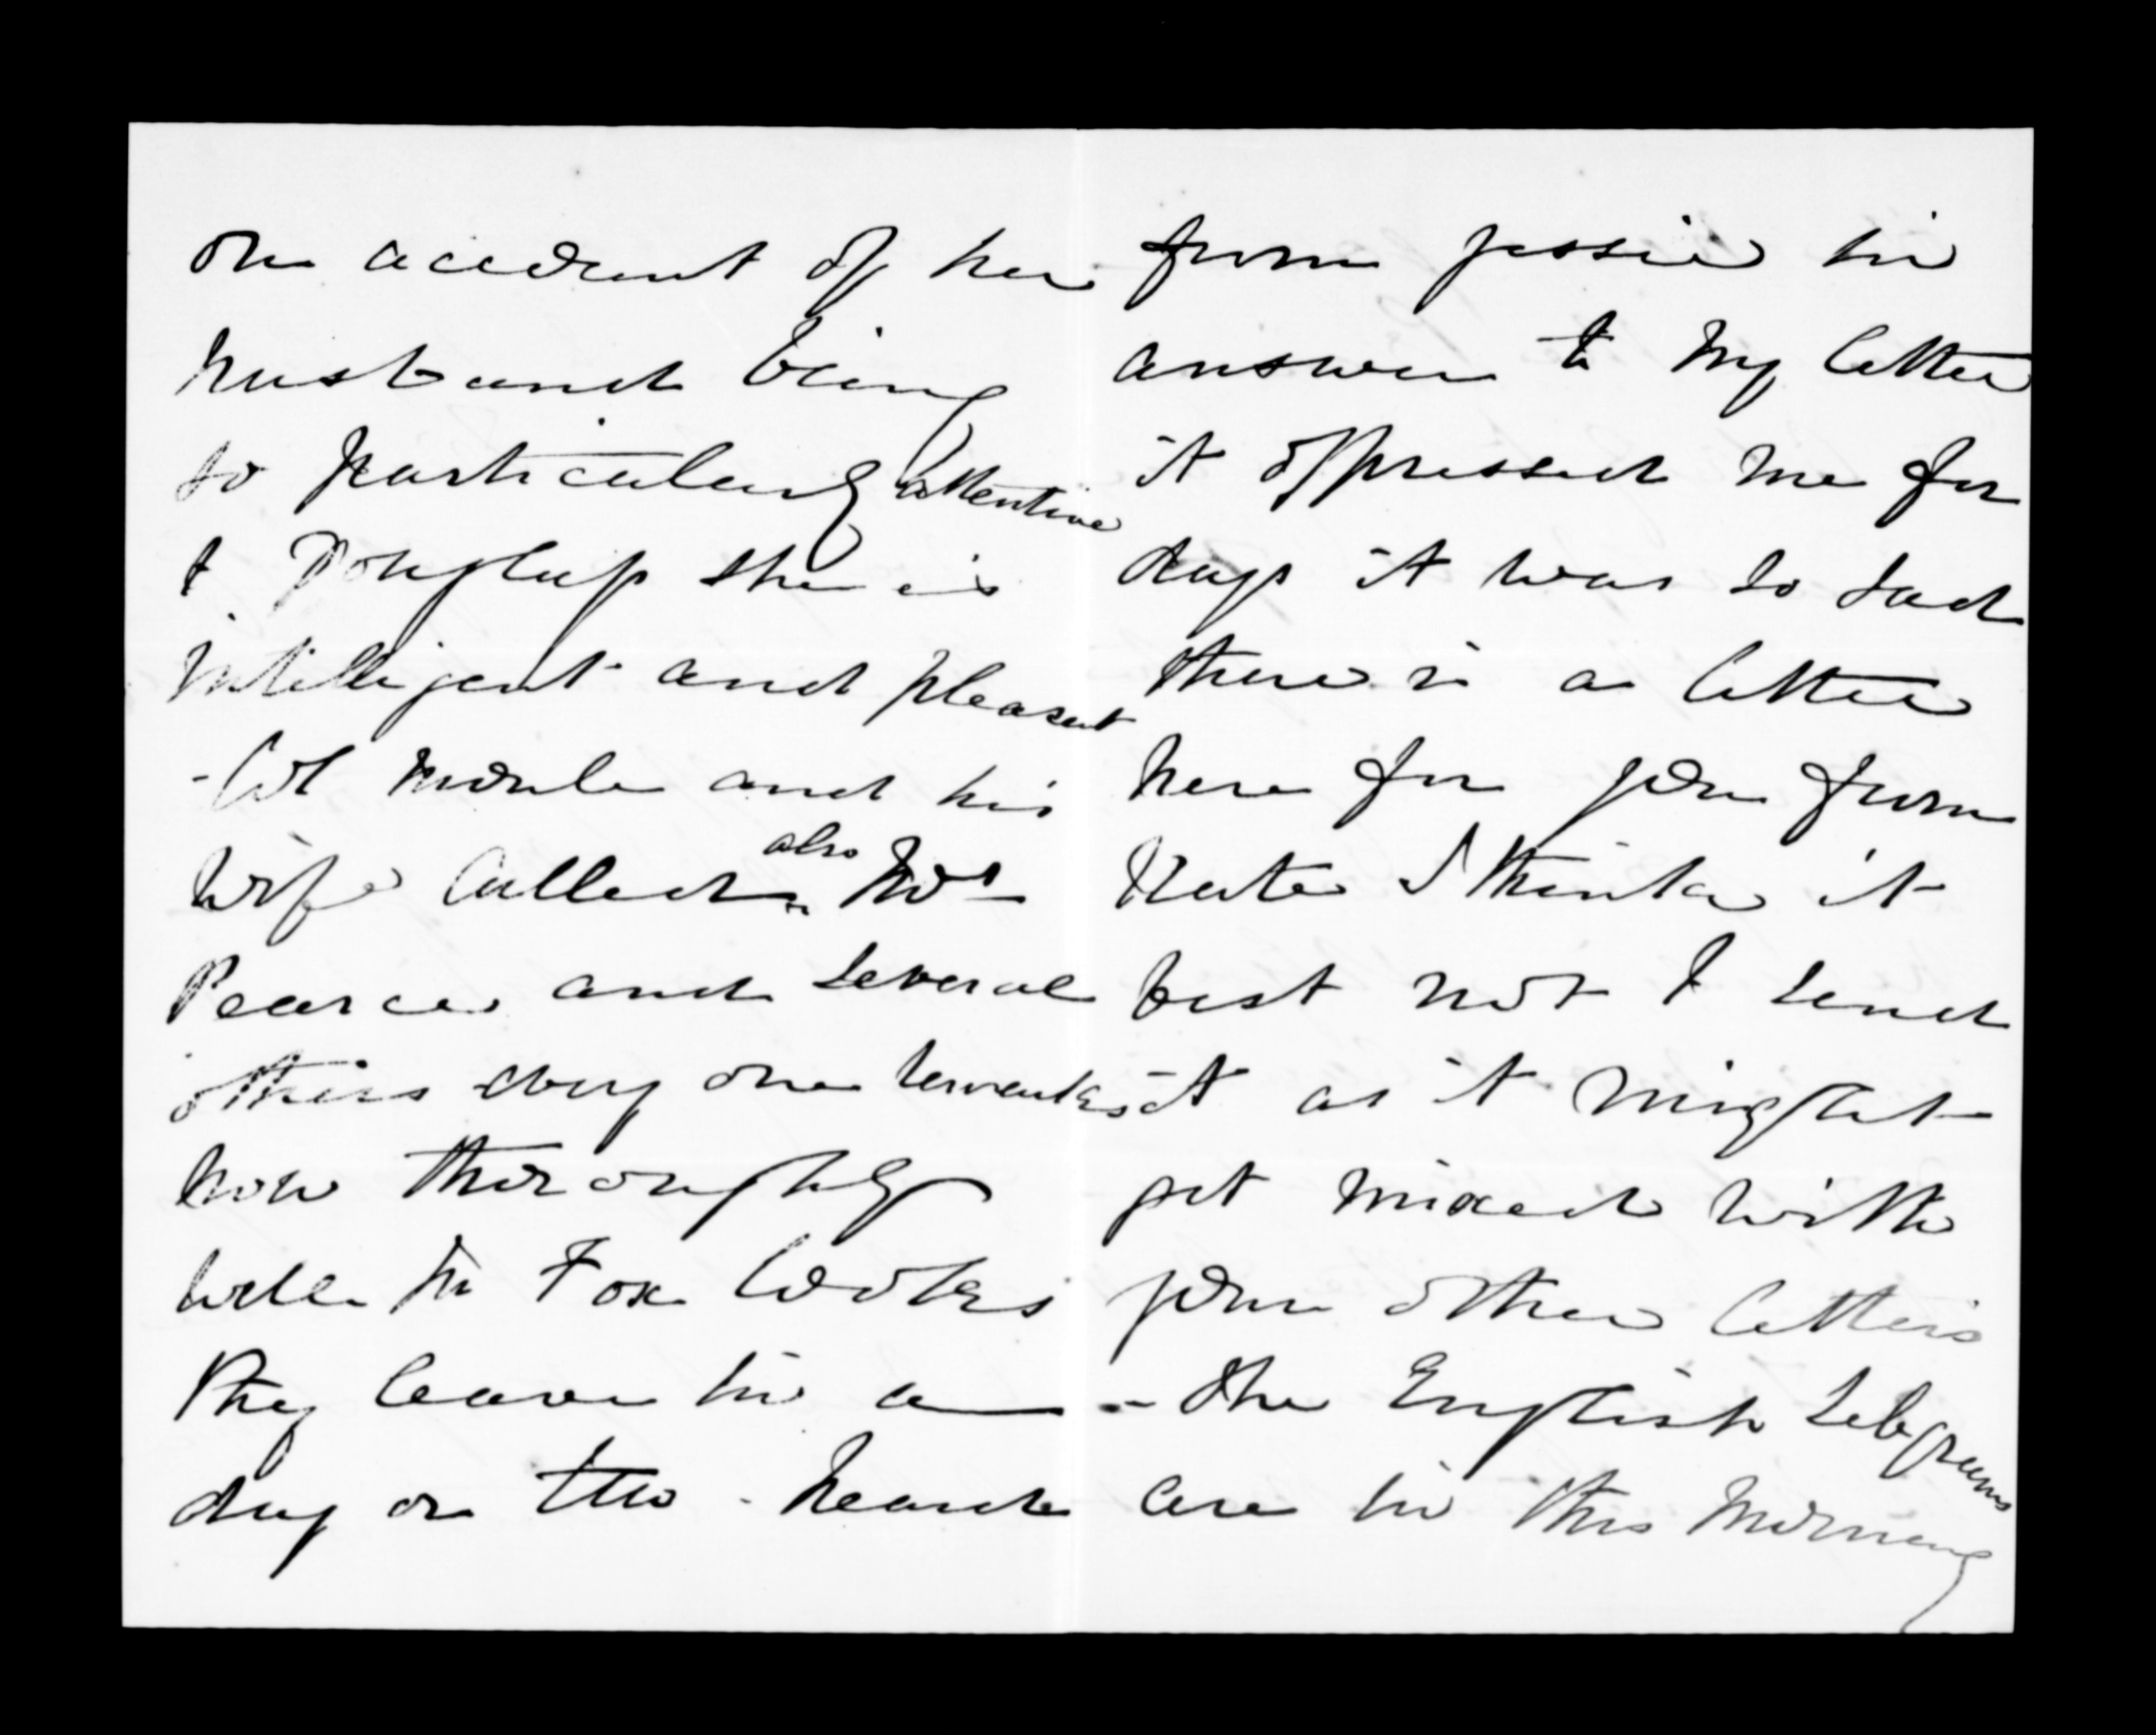 on account of her
husband being
so particularly attentive
to Douglas she is
intelligent and pleasant
- Col Moule and his
wife called also Mrs
Pearce and several
others every one remarks
how thoroughly
well Mr Fox looks
they leave in a
day or two - heard
from Jessie in
answer to my letter
it oppressed me for
days it was so sad
there is a letter
here for you from
Kate I think it
best not to send
it as it might
get mixed with
your other letters
- the English telegrams
are in this morning